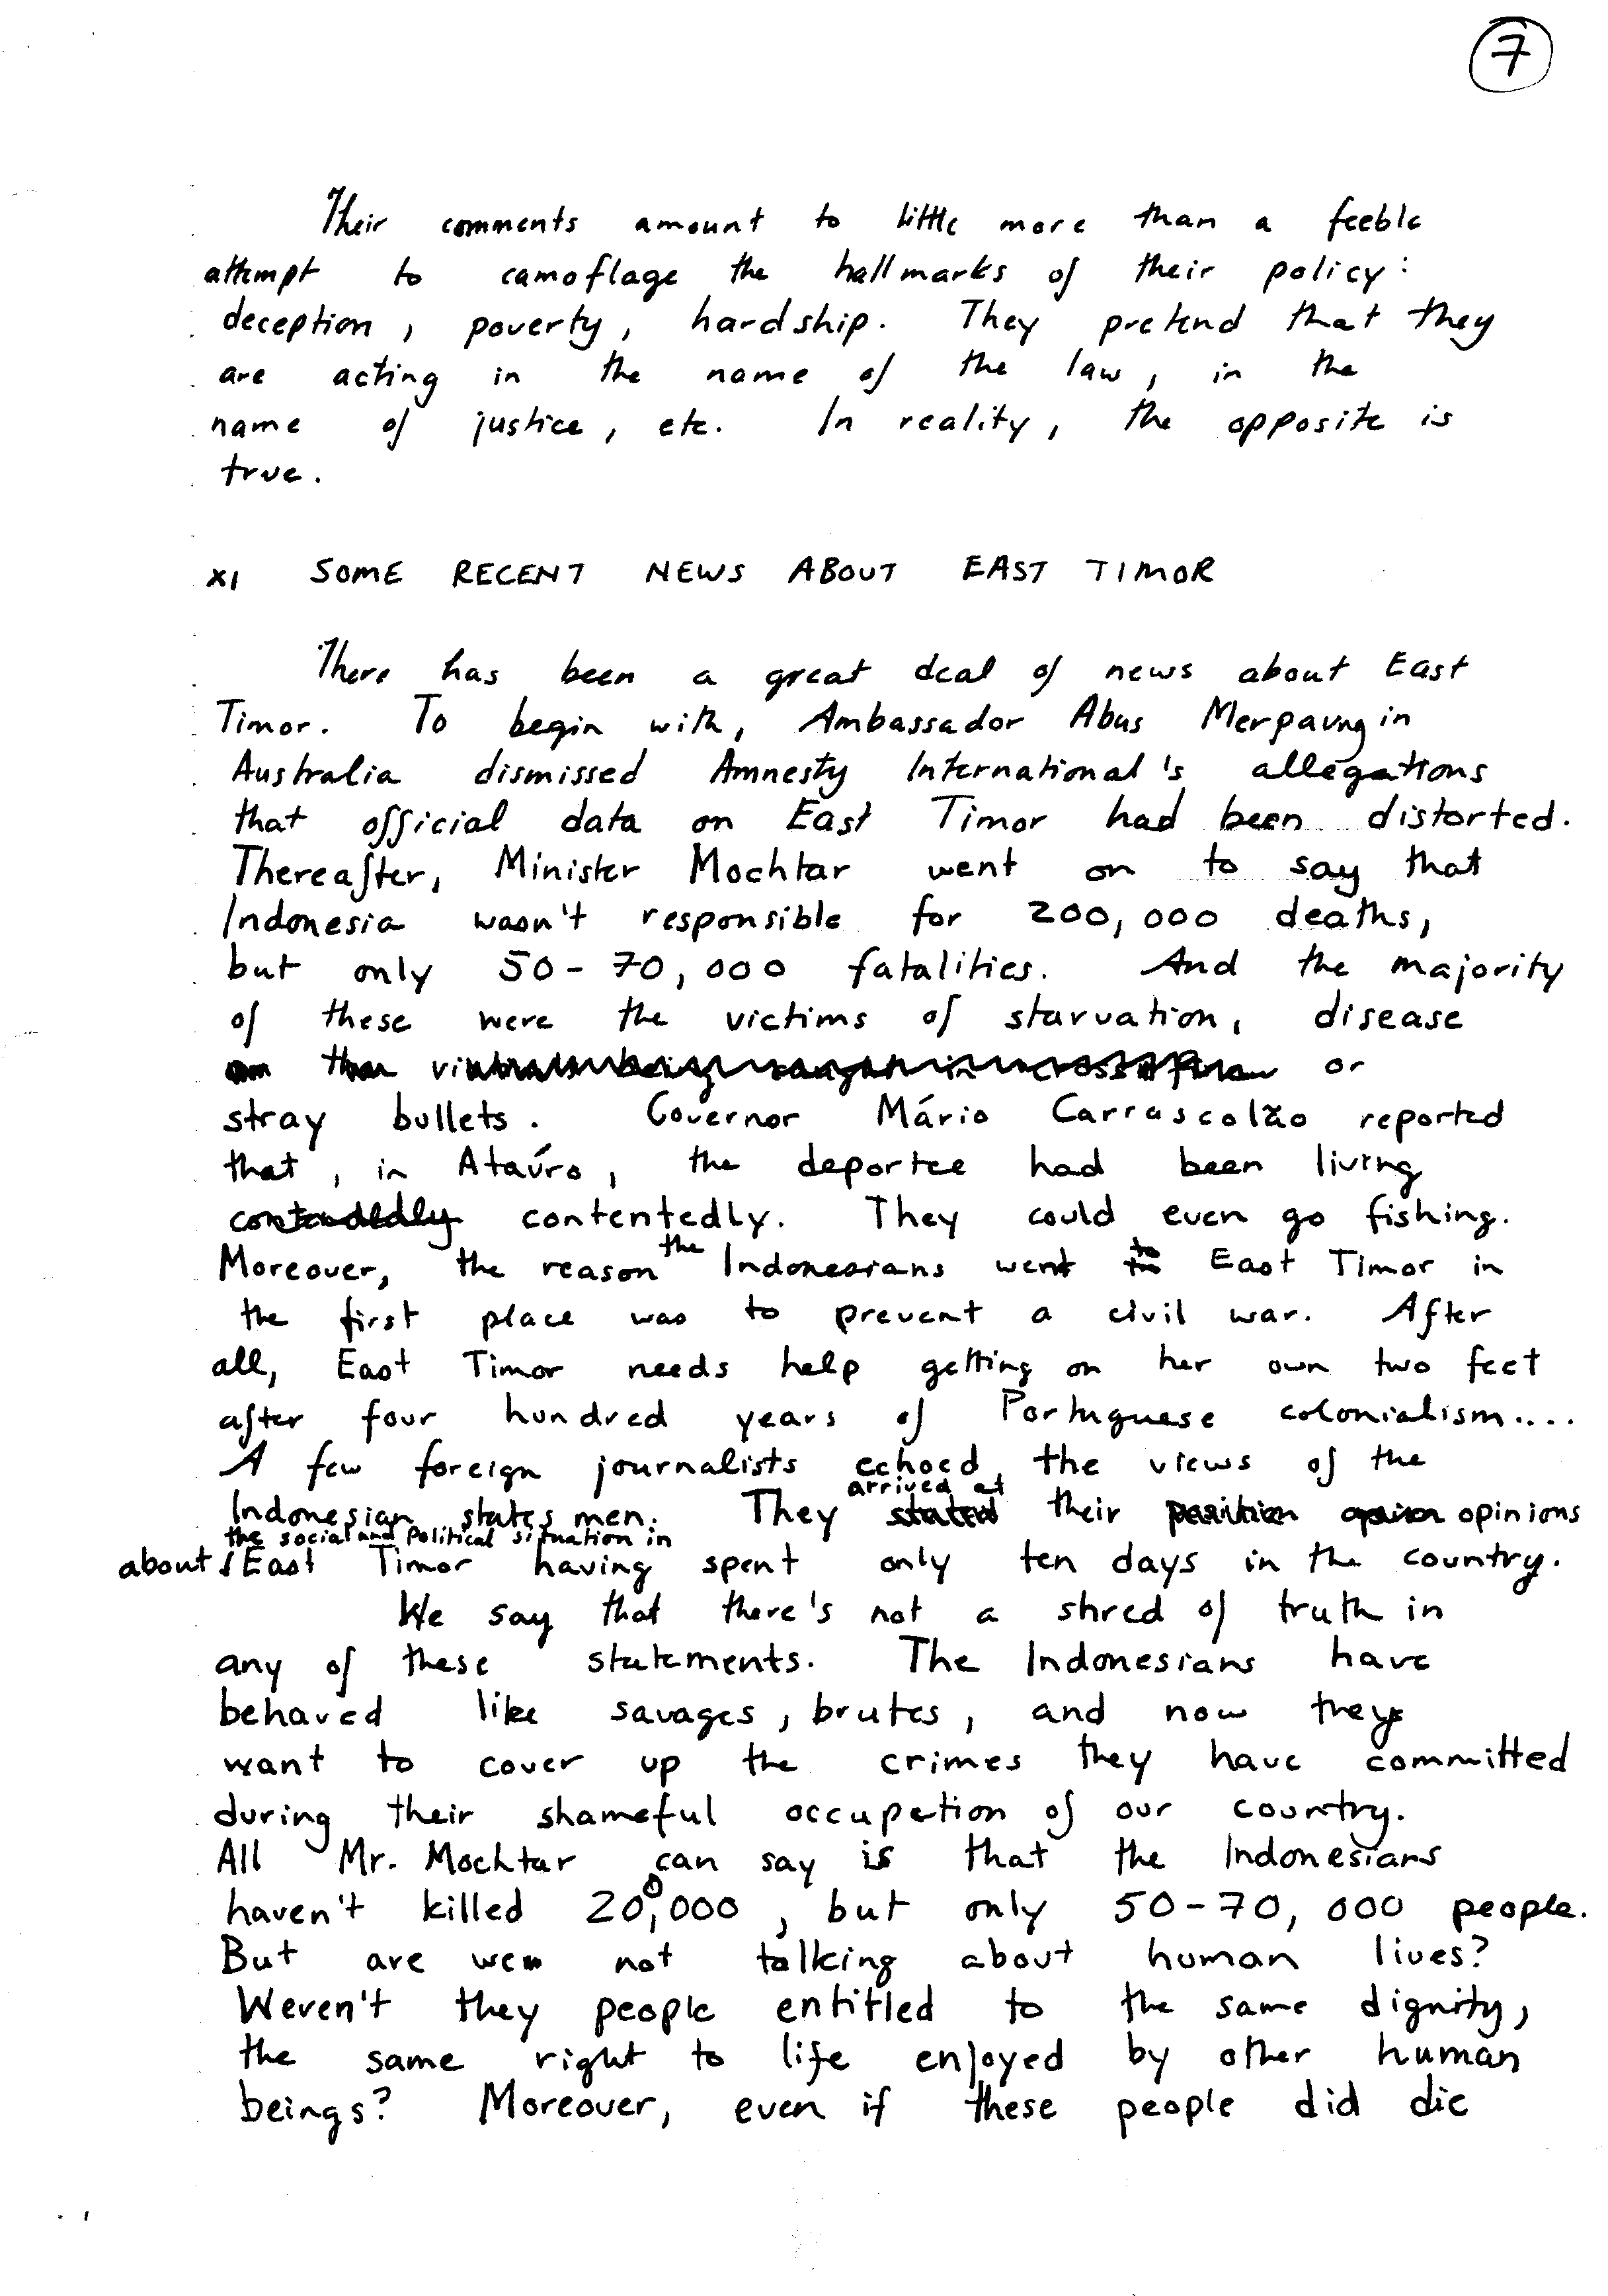 7
Their comments amount to little more than a feeble
attempt to camoflage the hallmarks of their policy:
deception, poverty, hardship. They pretend that they
are acting in the name of the law, in the
name of justice, etc. In reality, the opposite is
true.
XI SOME RECENT NEWS ABOUT EAST TIMOR
There has been a great deal of news about East
Timor. To begin with, Ambassador Abus Merpaung in
Australia dismissed Amnesty International's allegations
that official data on East Timor had been distorted.
Thereafter, Minister Mochtar went on to say that
Indonesia wasn't responsible for 200,000 deaths,
but only 50-70,000 fatalities. And the majority
of these were the victims of starvation, disease
or
stray bullets. Governor Mário Carrascolão reported
that, in Ataúro, the deportee had been living
contentedly. They could even go fishing.
Moreover, the reason the Indonesians went to East Timor in
the first place was to prevent a civil war. After
all, East Timor needs help getting on her own two feet
after four hundred years of Portuguese colonialism....
A few foreign journalists echoed the views of the
Indonesian statesmen. They arrived at their opinions
about the social and political situation in East Timor having spent only ten days in the country.
We say that there's not a shred of truth in
any of these statements. The Indonesians have
behaved like savages, brutes, and now they
want to cover up the crimes they have committed
during their shameful occupation of our country.
All Mr. Mochtar can say is that the Indonesians
haven't killed 200,000, but only 50-70,000 people.
But are we not talking about human lives?
Weren't they people entitled to the same dignity,
the same right to life enjoyed by other human
beings? Moreover, even if these people did die